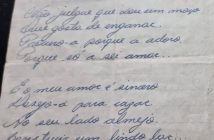 Não julgue que sou um moço
Que gosta de enganar.
Procuro-a porque a adoro
Porque só a sei amar.
E o meu amor é sincero
Desejo-a para casar
No seu lado almejo
Construir um lindo lar...